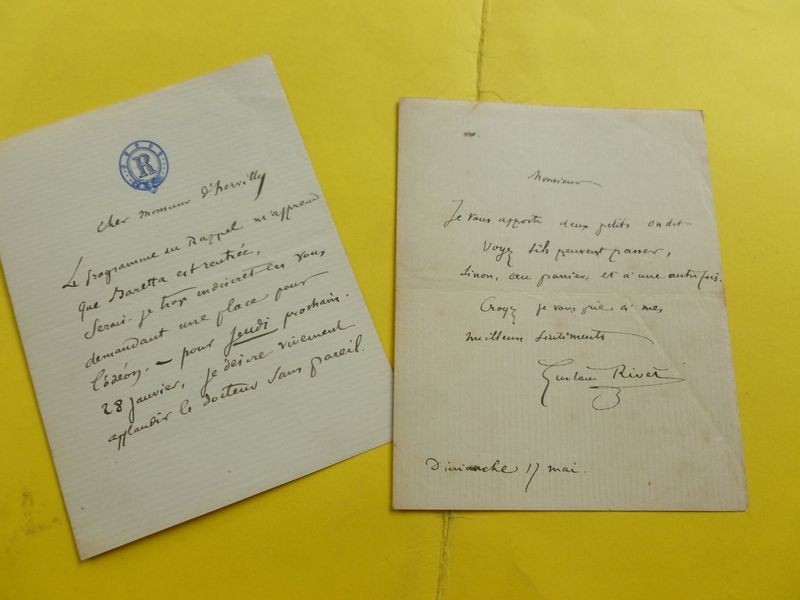 R
Cher Monsieur d'hervilly
Le programme du Rappel m'apprend
que Baretta est rentrée,
Serai-je trop indiscret en vous
demandant une place pour
l'odéon, – pour Jeudi prochain.
28 janvier, je désire vivement
applaudir le docteur sans pareil.
Monsieur
Je vous apporte deux petits on dit.
Voyez s'ils peuvent passer,
Sinon, au panier, et à une autre fois.
Croyez je vous prie à mes
meilleurs sentiments
Gustave Rivet
Dimanche 17 mai.